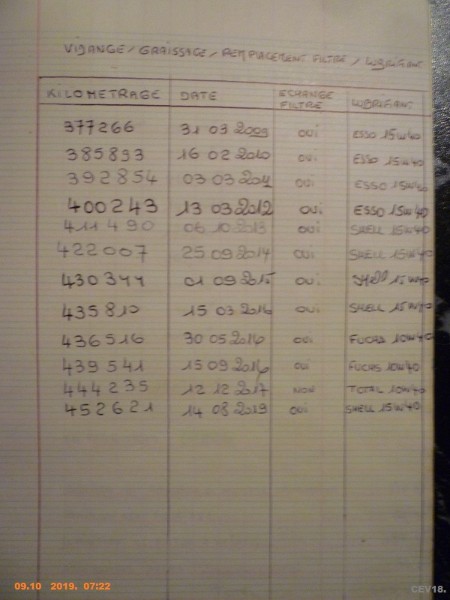 VIDANGE / GRAISSAGE / REMPLACEMENT FILTRE / LUBRIFIANT
KILOMETRAGE DATE ECHANGE FILTRE LUBRIFIANT
377266 31 03 2009 OUI ESSO 15W40
385893 16 02 2010 OUI ESSO 15W40
392854 03 03 2011 OUI ESSO 15W40
400243 13 03 2012 OUI ESSO 15W40
411490 06 10 2013 OUI SHELL 15W40
422007 25 09 2014 OUI SHELL 15W40
430344 01 09 2015 OUI Shell 15W40
435810 15 03 2016 OUI SHELL 15W40
436516 30 05 2016 OUI FUCHS 10W40
439541 15 09 2016 OUI FUCHS 10W40
444235 12 12 2017 NON TOTAL 10W40
452621 14 08 2019 OUI SHELL 15W40
09.10 2019. 07:22
CEV18.